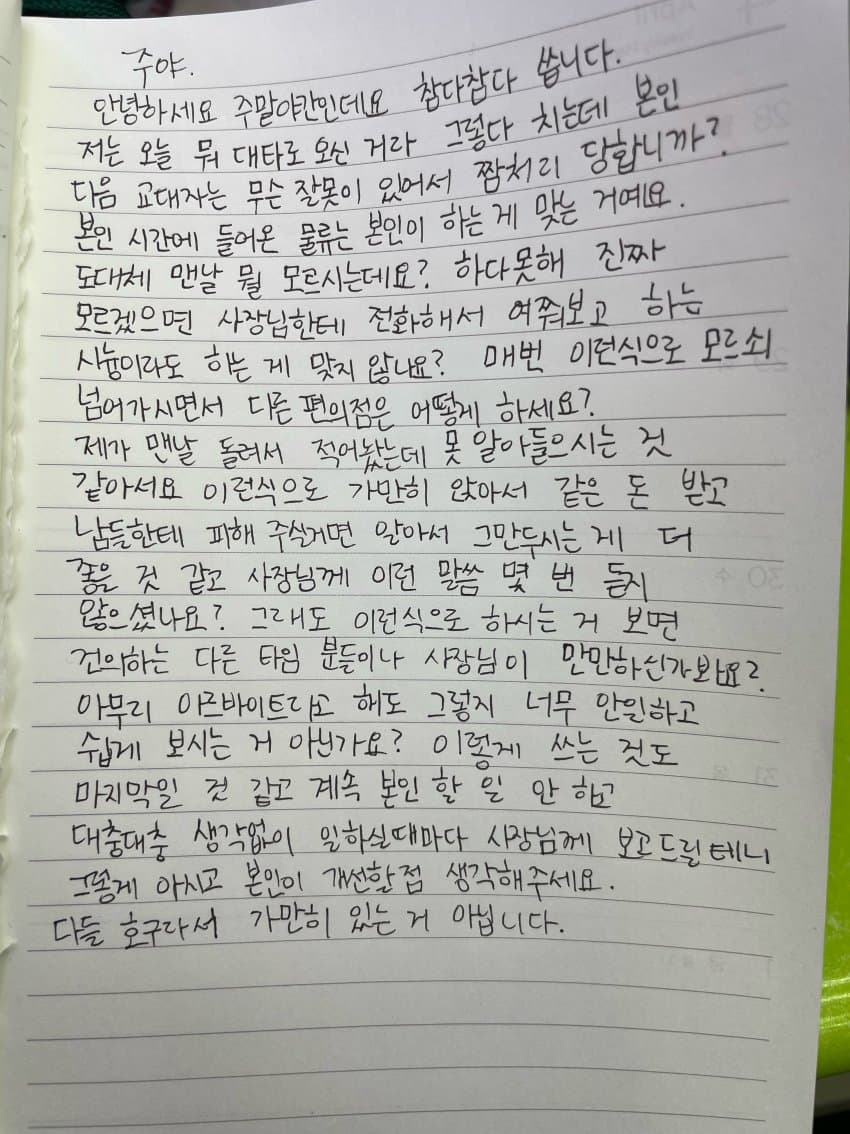 주야.
안녕하세요 주말야간인데요 참다참다 씁니다.
저는 오늘 뭐 대타로 오신 거라 그렇다 치는데 본인
다음 교대자는 무슨 잘못이 있어서 짬처리 당합니까?
본인 시간에 들어온 물류는 본인이 하는 게 맞는 거예요.
도대체 맨날 뭘 모르시는데요? 하다못해 진짜
모르겠으면 사장님한테 전화해서 여쭤보고 하는
시늉이라도 하는 게 맞지 않나요? 매번 이런식으로 모르쇠
넘어가시면서 다른 편의점은 어떻게 하세요?
제가 맨날 돌려서 적어놨는데 못 알아들으시는 것
같아서요 이런식으로 가만히 앉아서 같은 돈 받고
남들한테 피해 주실거면 알아서 그만두시는 게 더
좋을 것 같고 사장님께 이런 말씀 몇 번 듣지
않으셨나요? 그래도 이런식으로 하시는 거 보면
건의하는 다른 타임 분들이나 사장님이 만만하신가봐요?
아무리 아르바이트라고 해도 그렇지 너무 안일하고
쉽게 보시는 거 아닌가요? 이렇게 쓰는 것도
마지막일 것 같고 계속 본인 할 일 안 하고
대충대충 생각없이 일하실때마다 사장님께 보고드릴테니
그렇게 아시고 본인이 개선할점 생각해주세요.
다들 호구라서 가만히 있는 거 아닙니다.